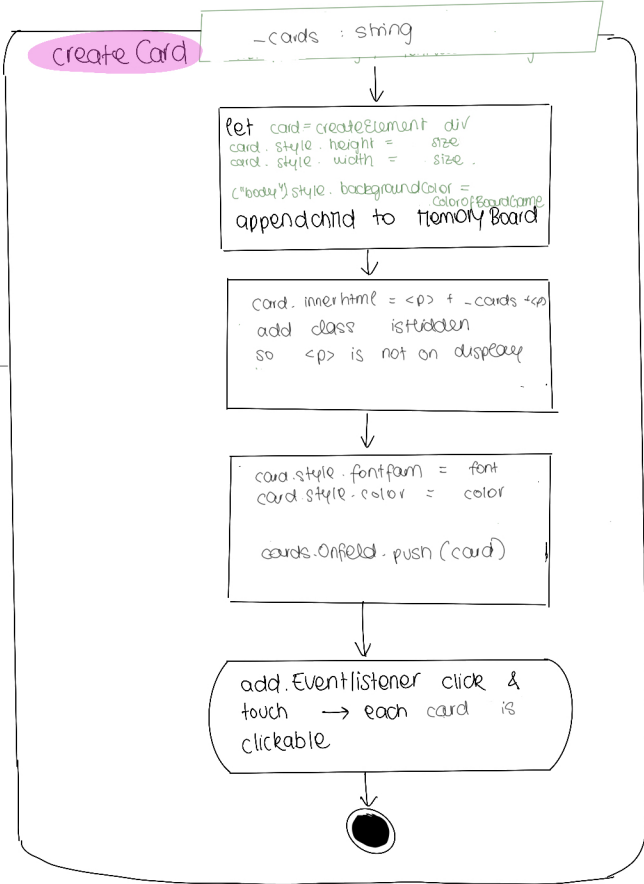 create Card
_cards : string
let card = createElement div
card.style.height = size
card.style.width = size.
("body").style.backgroundColor =
ColorOfBoardGame
appendchild to MemoryBoard
card.innerhtml = <p> + _cards + <p
add class isHidden
so <p> is not on display
card.style.fontfam = font
card.style.color = color
cards.Onfield.push (card)
add.Eventlistener click &
touch → each card is
clickable